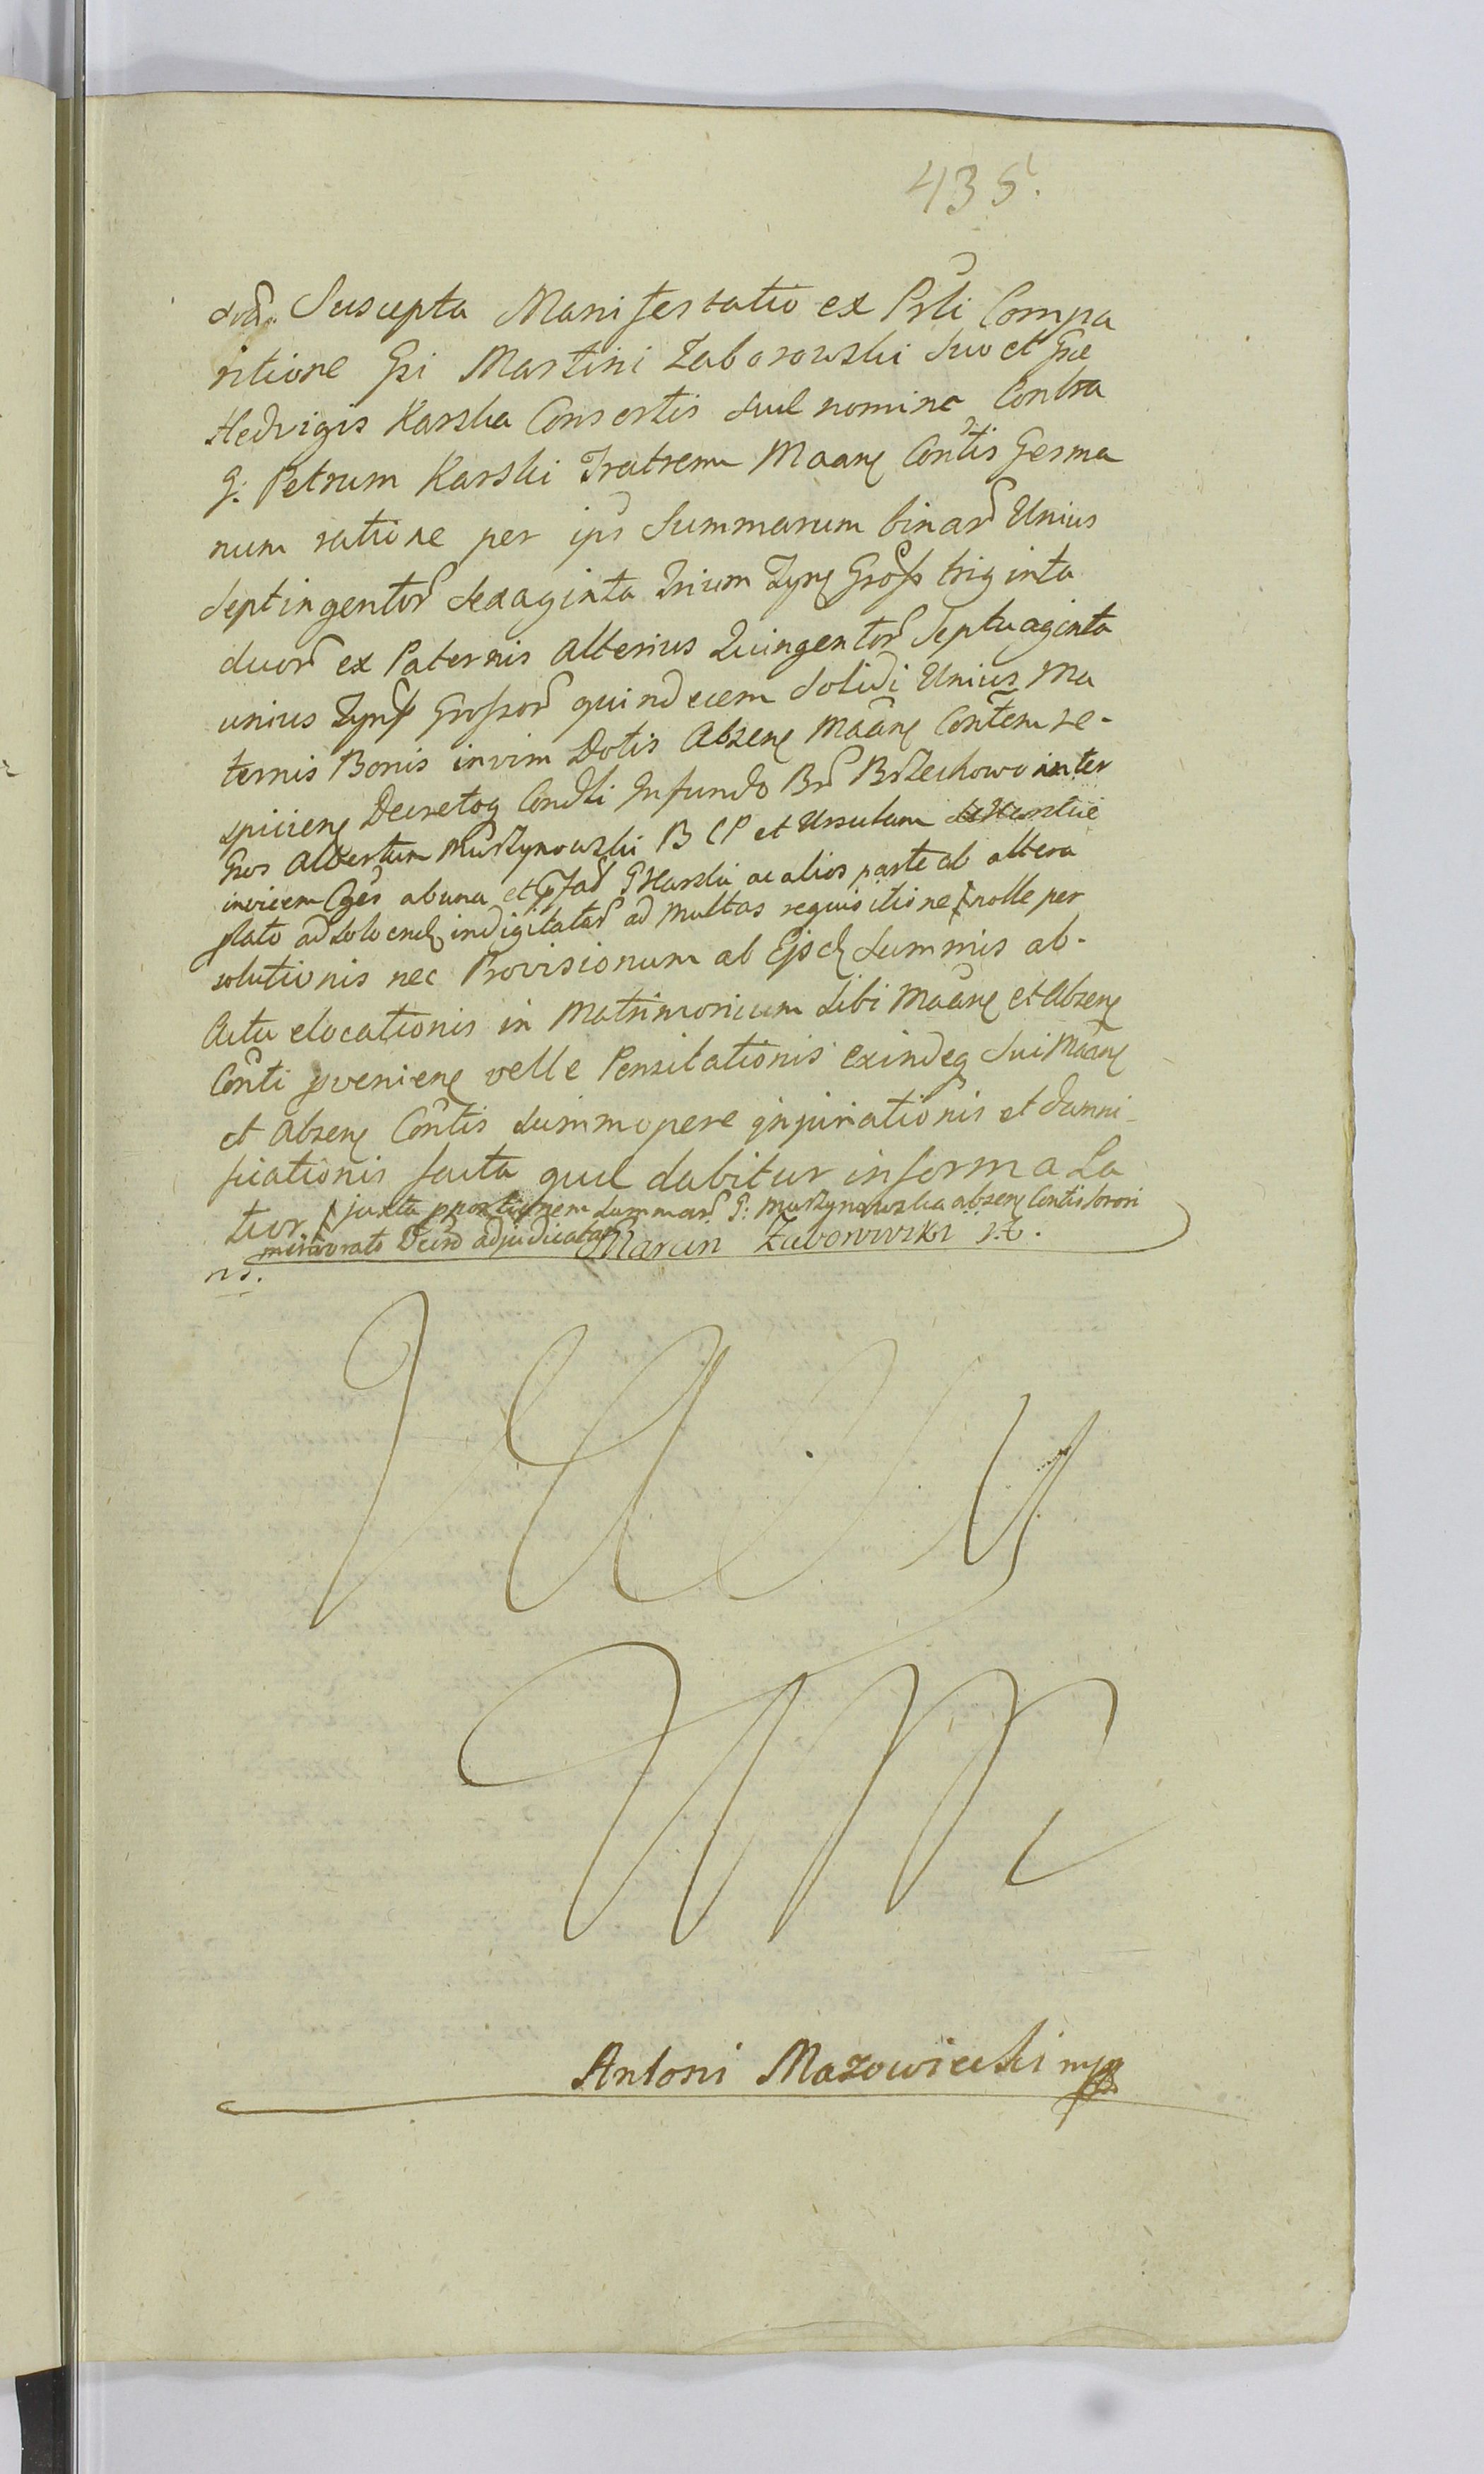 435.
Suscepta Manifestatio ex Psli Compa
ritione Gsi Martini Zaborowski Suo et Gse
Hedvigis Karska Consortis Suae nomine Contra
G: Petrum Karski Fratrem Maane Contis Germa
num ratione per ips Summarum binar Unius
Septingentor Sexaginta Trium Zyne Gross triginta
duor ex Paternis Alterius Quingentor Septuaginta
unius Zyne Grossor quindecem Solidi Unius Ma
ternis Bonis in vim Dotis Absene Maane Contem re-
spiciene Decretoq Condli In fundo Br Brzechowo inter
Gsos Albertum Murzynowski B C P et Ursulam
invicem Cges ab una et G Karski ac alios parte ab altera
lato ad solvend indigitatar ad Multas requisitione nolle per
solutionis nec Provisionum ab Ejsd Summis ab-
Actu elocationis in Matrimonium Sibi Maane et Absene
Conti proveniene velle Pensitationis exindeq Sui Maane
et Absene Contis Summopere injuriationis et damni-
ficationis facta quae dabitur in forma La
tior. juxta pportionem Summar G: Murzynowska absene Contis Sorori
minorato adjudicatar Marcin Zaborowski
ns.
Antoni Mazowiecki mp